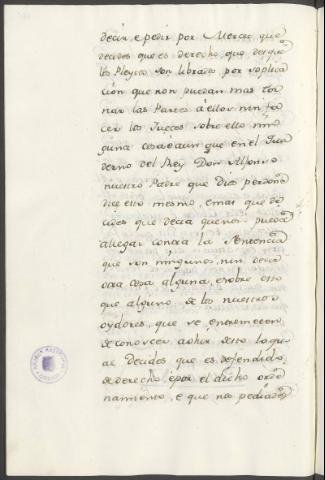 decir, e pedir por Merced que
decides que es derecho, que desque
los Pleytos son librados por suplica
ción que non puedan mas tor
nar las Partes á ellos nin fa
cer los Jueces sobre ello nin
guna cosa, é aun que en el Qua
derno del Rey Don Alfonso
nuestro Padre que Dios perdone
dice esto mesmo, e mas que de
cides que decia que non pueda
allegar contra la Sentencia
que son ningunos, nin decir
otra cosa alguna, e sobre esto
que algunos de los nuestros
oydores, que se entremeten
de conocer, a ohir desto lo qu
al decides que es defendido
de derecho, é por el dicho orde
namiento, e que nos pediades